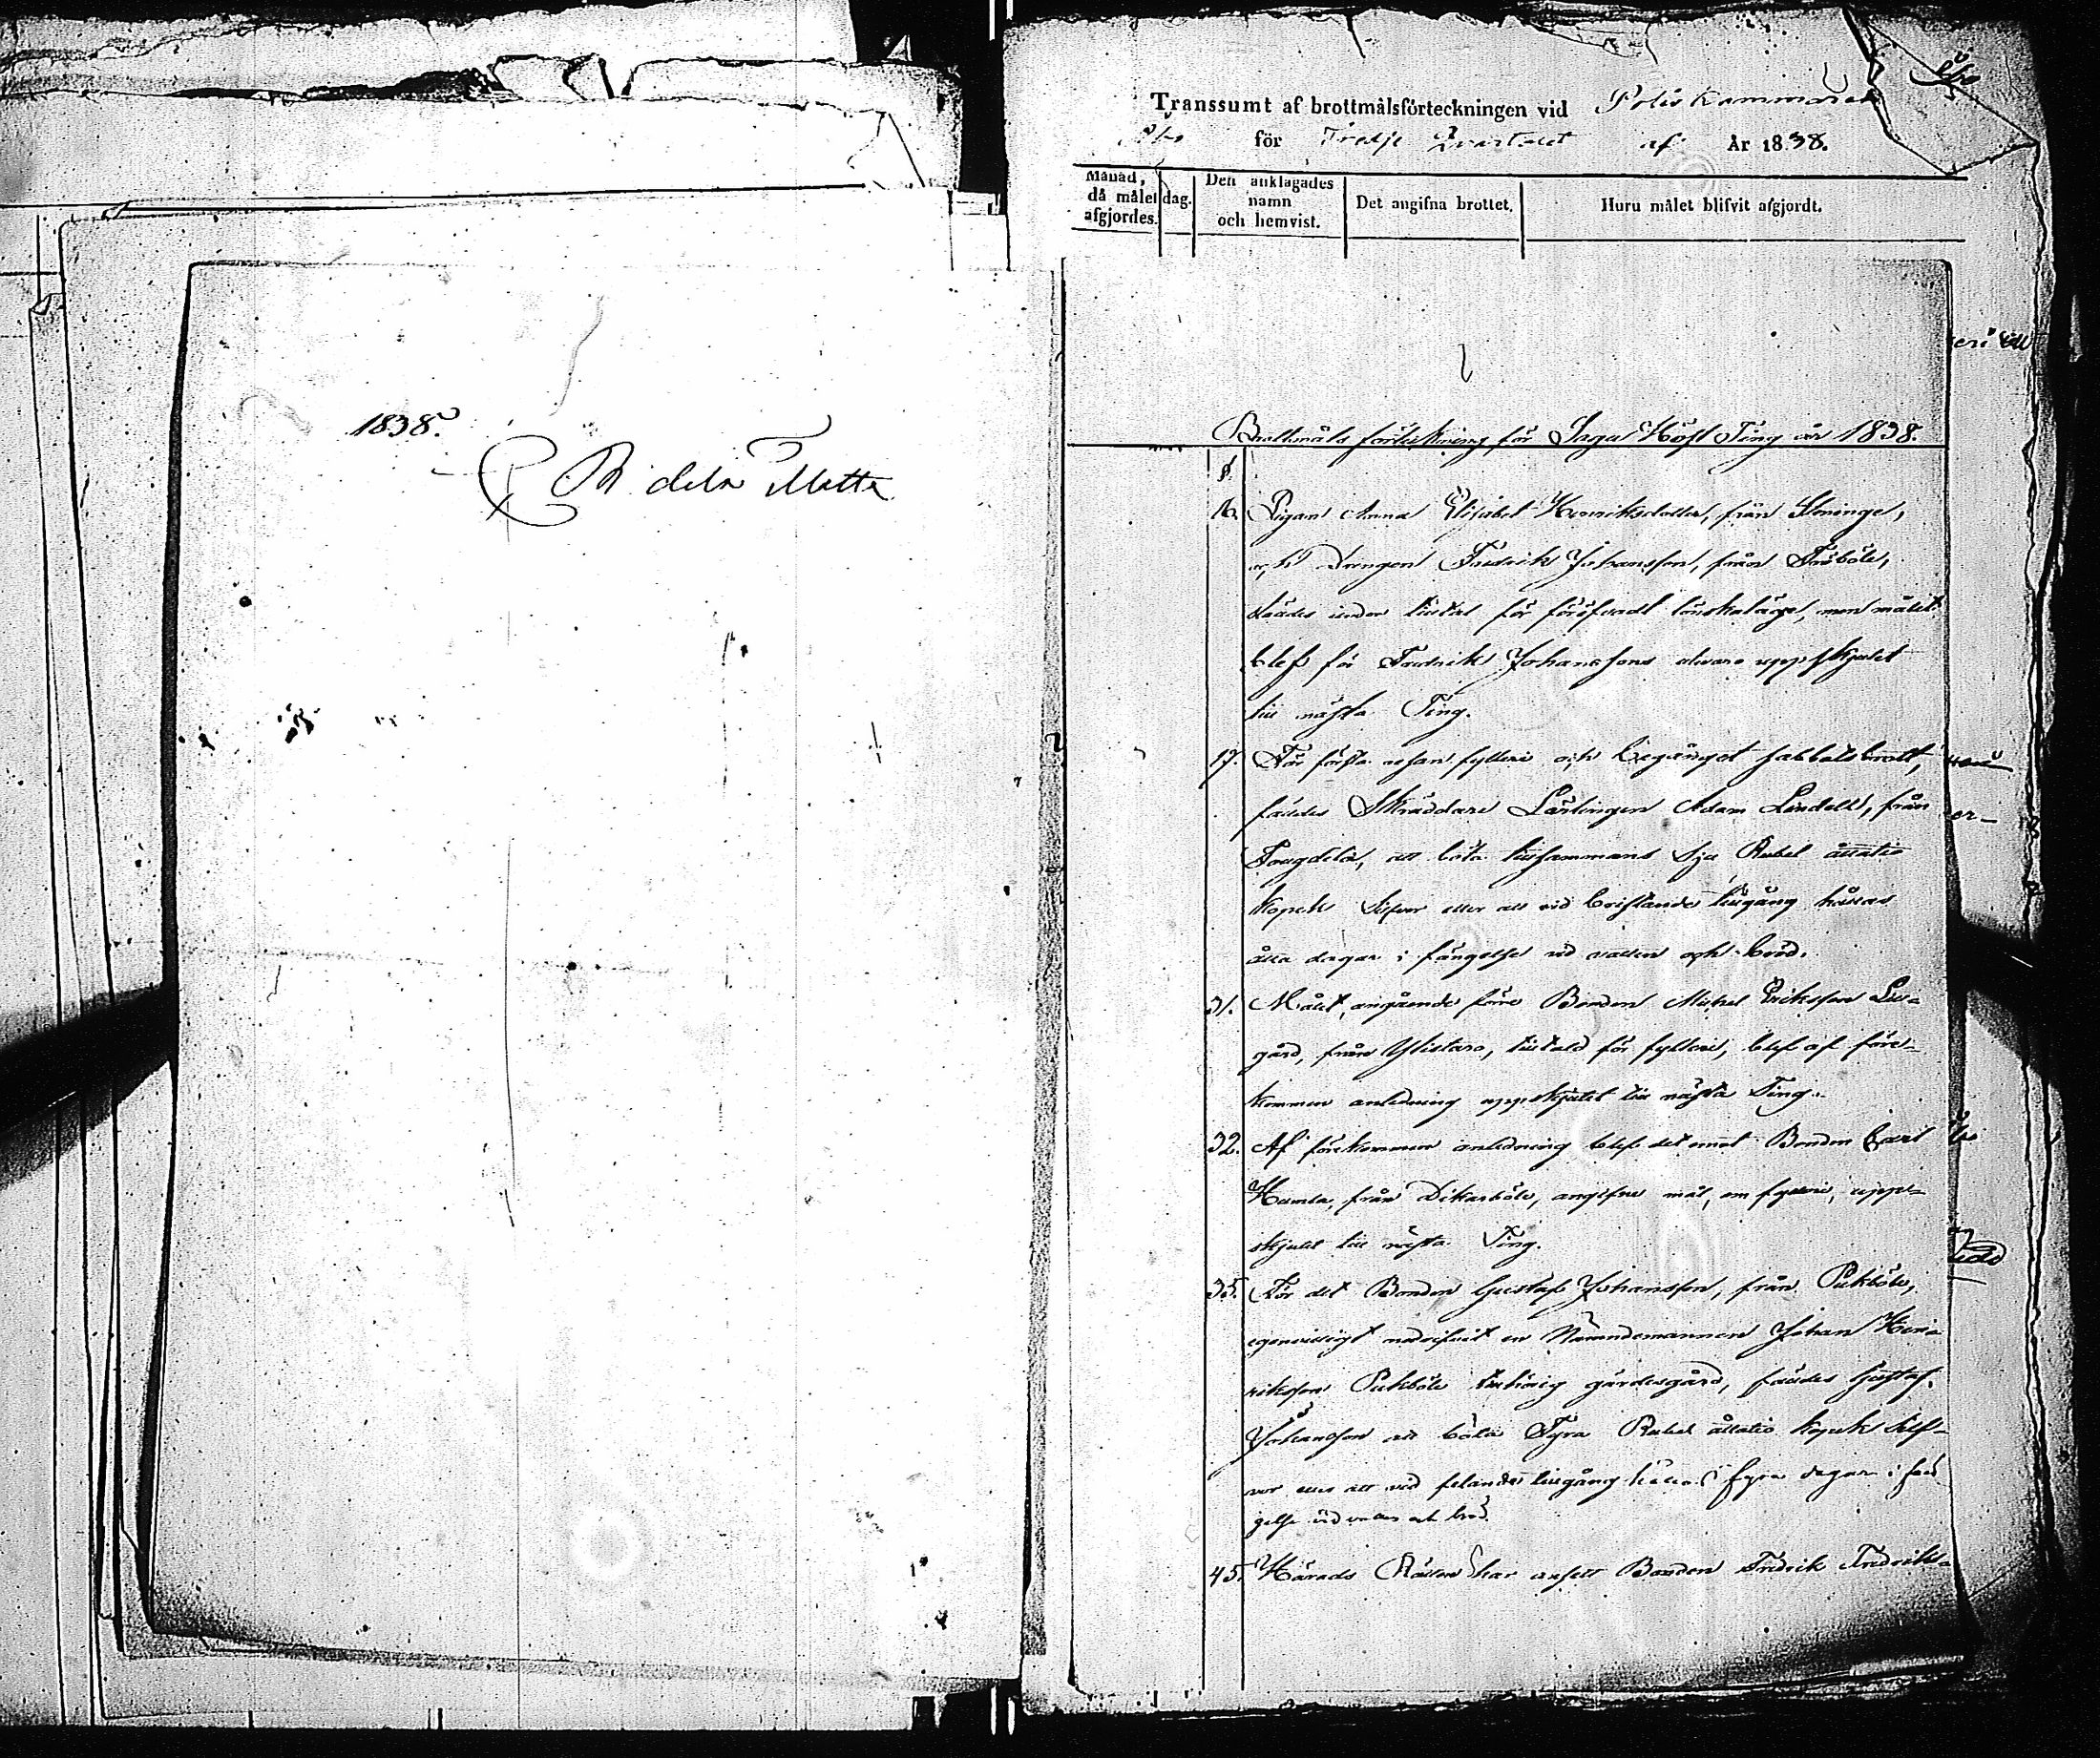 1838.
Transsumt af brottmålsförteckningen vid Poliskammaren
Åbo för Tredje Qvartalet af År 1838.
Månad, då målet afgjordes.
dag.
Den anklagades namn och hemvist.
Det angifna brottet.
Huru målet blifvit afgjordt.
Brottmåls förteckning för Sagu Höst Ting år 1838.
§.
16. Pigan Anna Elisabet Henriksdotter, från
och Drängen Fredrik Johansson, från
stådes under tiltal för föröfvadt lönskaläge, men målet
blef för Fredrik Johanssons uppskjutet
till nästa Ting.
17. För första resan fylleri och begånget sabbatsbrott,
fälldes Skräddare Lärlingen Adam Lindell, från
att böta tillsammans sju Rubel åttatio
kopek Silfver eller att vid bristande tillgång hållas
åtta dagar i fängelse vid vatten och bröd.
31. Målet, angående förre Bonden Michel Eriksson
gård, från Ylistaro, tilltald för fylleri, blef af före-
kommen anledning uppskjutet till nästa Ting.
32. Af förekommen anledning blef det emot Bonden Carl
Humla, från Dikarböle, angifne mål, om fylleri, upp-
skjutet till nästa Ting.
35. För det Bonden Gustaf Johansson, från Pukböle,
egenvilligt nedrifvit en Nämndemannen Johan Hen-
riksson Pukböle tillhörig gärdesgård, fälldes Gustaf
Johansson att böta Fyra Rubel åttatio kopek Silf-
ver eller att vid felande tillgång hållas i fyra dagar i fän
gelse vid vatten och bröd.
45. Härads Rätten har ansett Bonden Fredrik Fredriks-